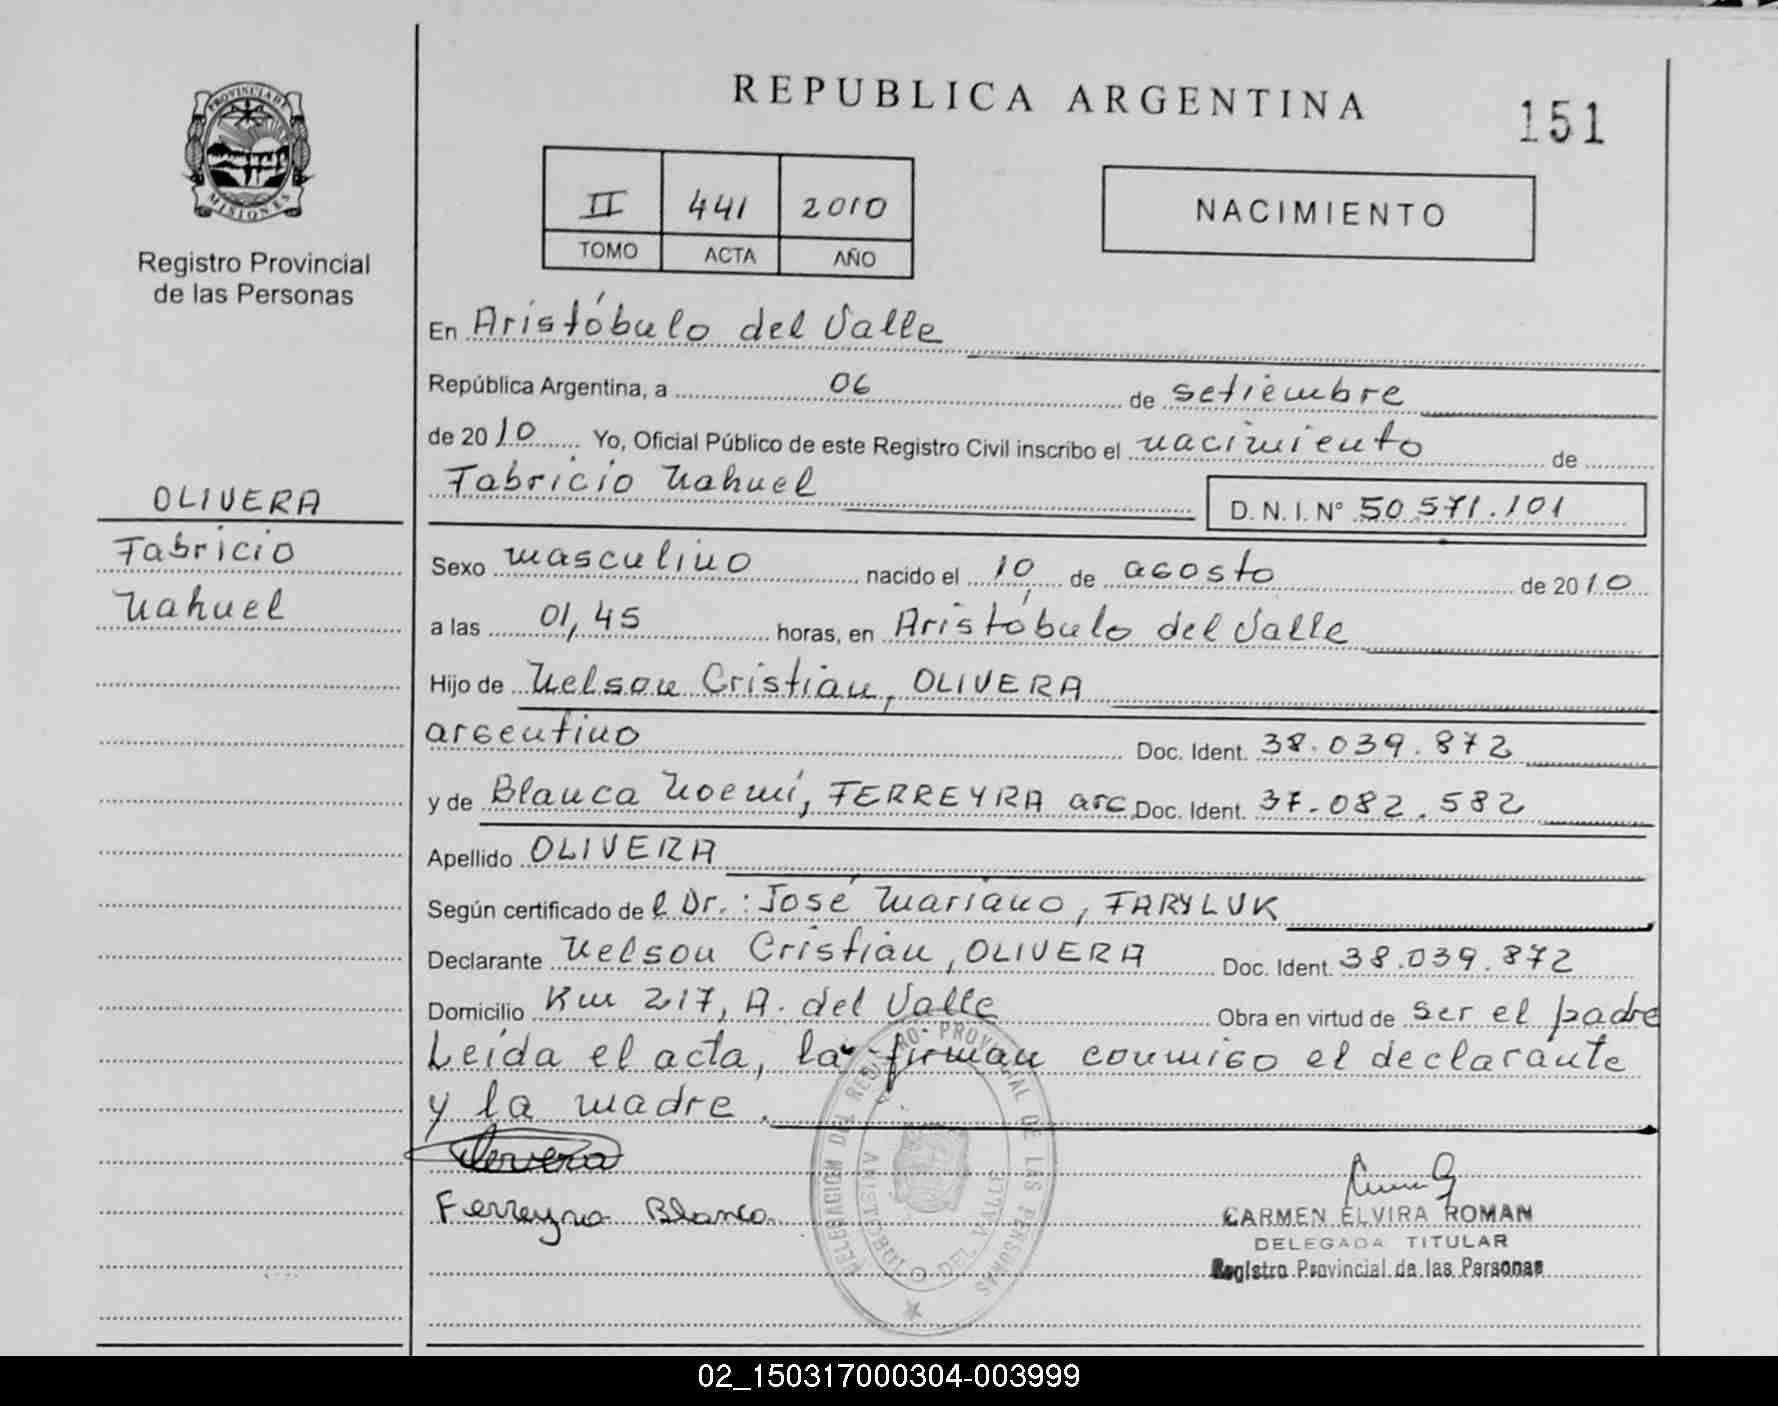 REPUBLICA ARGENTINA
151
PROVINCIA DE MISIONES
Registro Provincial
de las Personas
II 441 2010
TOMO ACTA AÑO
NACIMIENTO
En Aristóbulo del Valle
República Argentina, a 06 de setiembre
de 2010 Yo, Oficial Público de este Registro Civil inscribo el nacimiento de
Fabricio Nahuel D. N. I. Nº 50.571.101
OLIVERA
Fabricio
Nahuel
Sexo masculino nacido el 10 de agosto de 2010
a las 01,45 horas, en Aristóbulo del Valle
Hijo de Nelson Cristian, OLIVERA
argentino Doc. Ident. 38.039.872
y de Blanca Noemí, FERREYRA arg Doc. Ident. 37.082.582
Apellido OLIVERA
Según certificado del Dr.: José Mariano, FARYLUK
Declarante Nelson Cristian, OLIVERA Doc. Ident. 38.039.872
Domicilio Km 217, A. del Valle Obra en virtud de ser el padre
Leída el acta, la firman conmigo el declarante
y la madre.
Ferreyra Blanca
DELEGACION DEL REGISTRO PROVINCIAL DE LAS PERSONAS
ARISTOBULO DEL VALLE
CARMEN ELVIRA ROMAN
DELEGADA TITULAR
Registro Provincial de las Personas
02_150317000304-003999